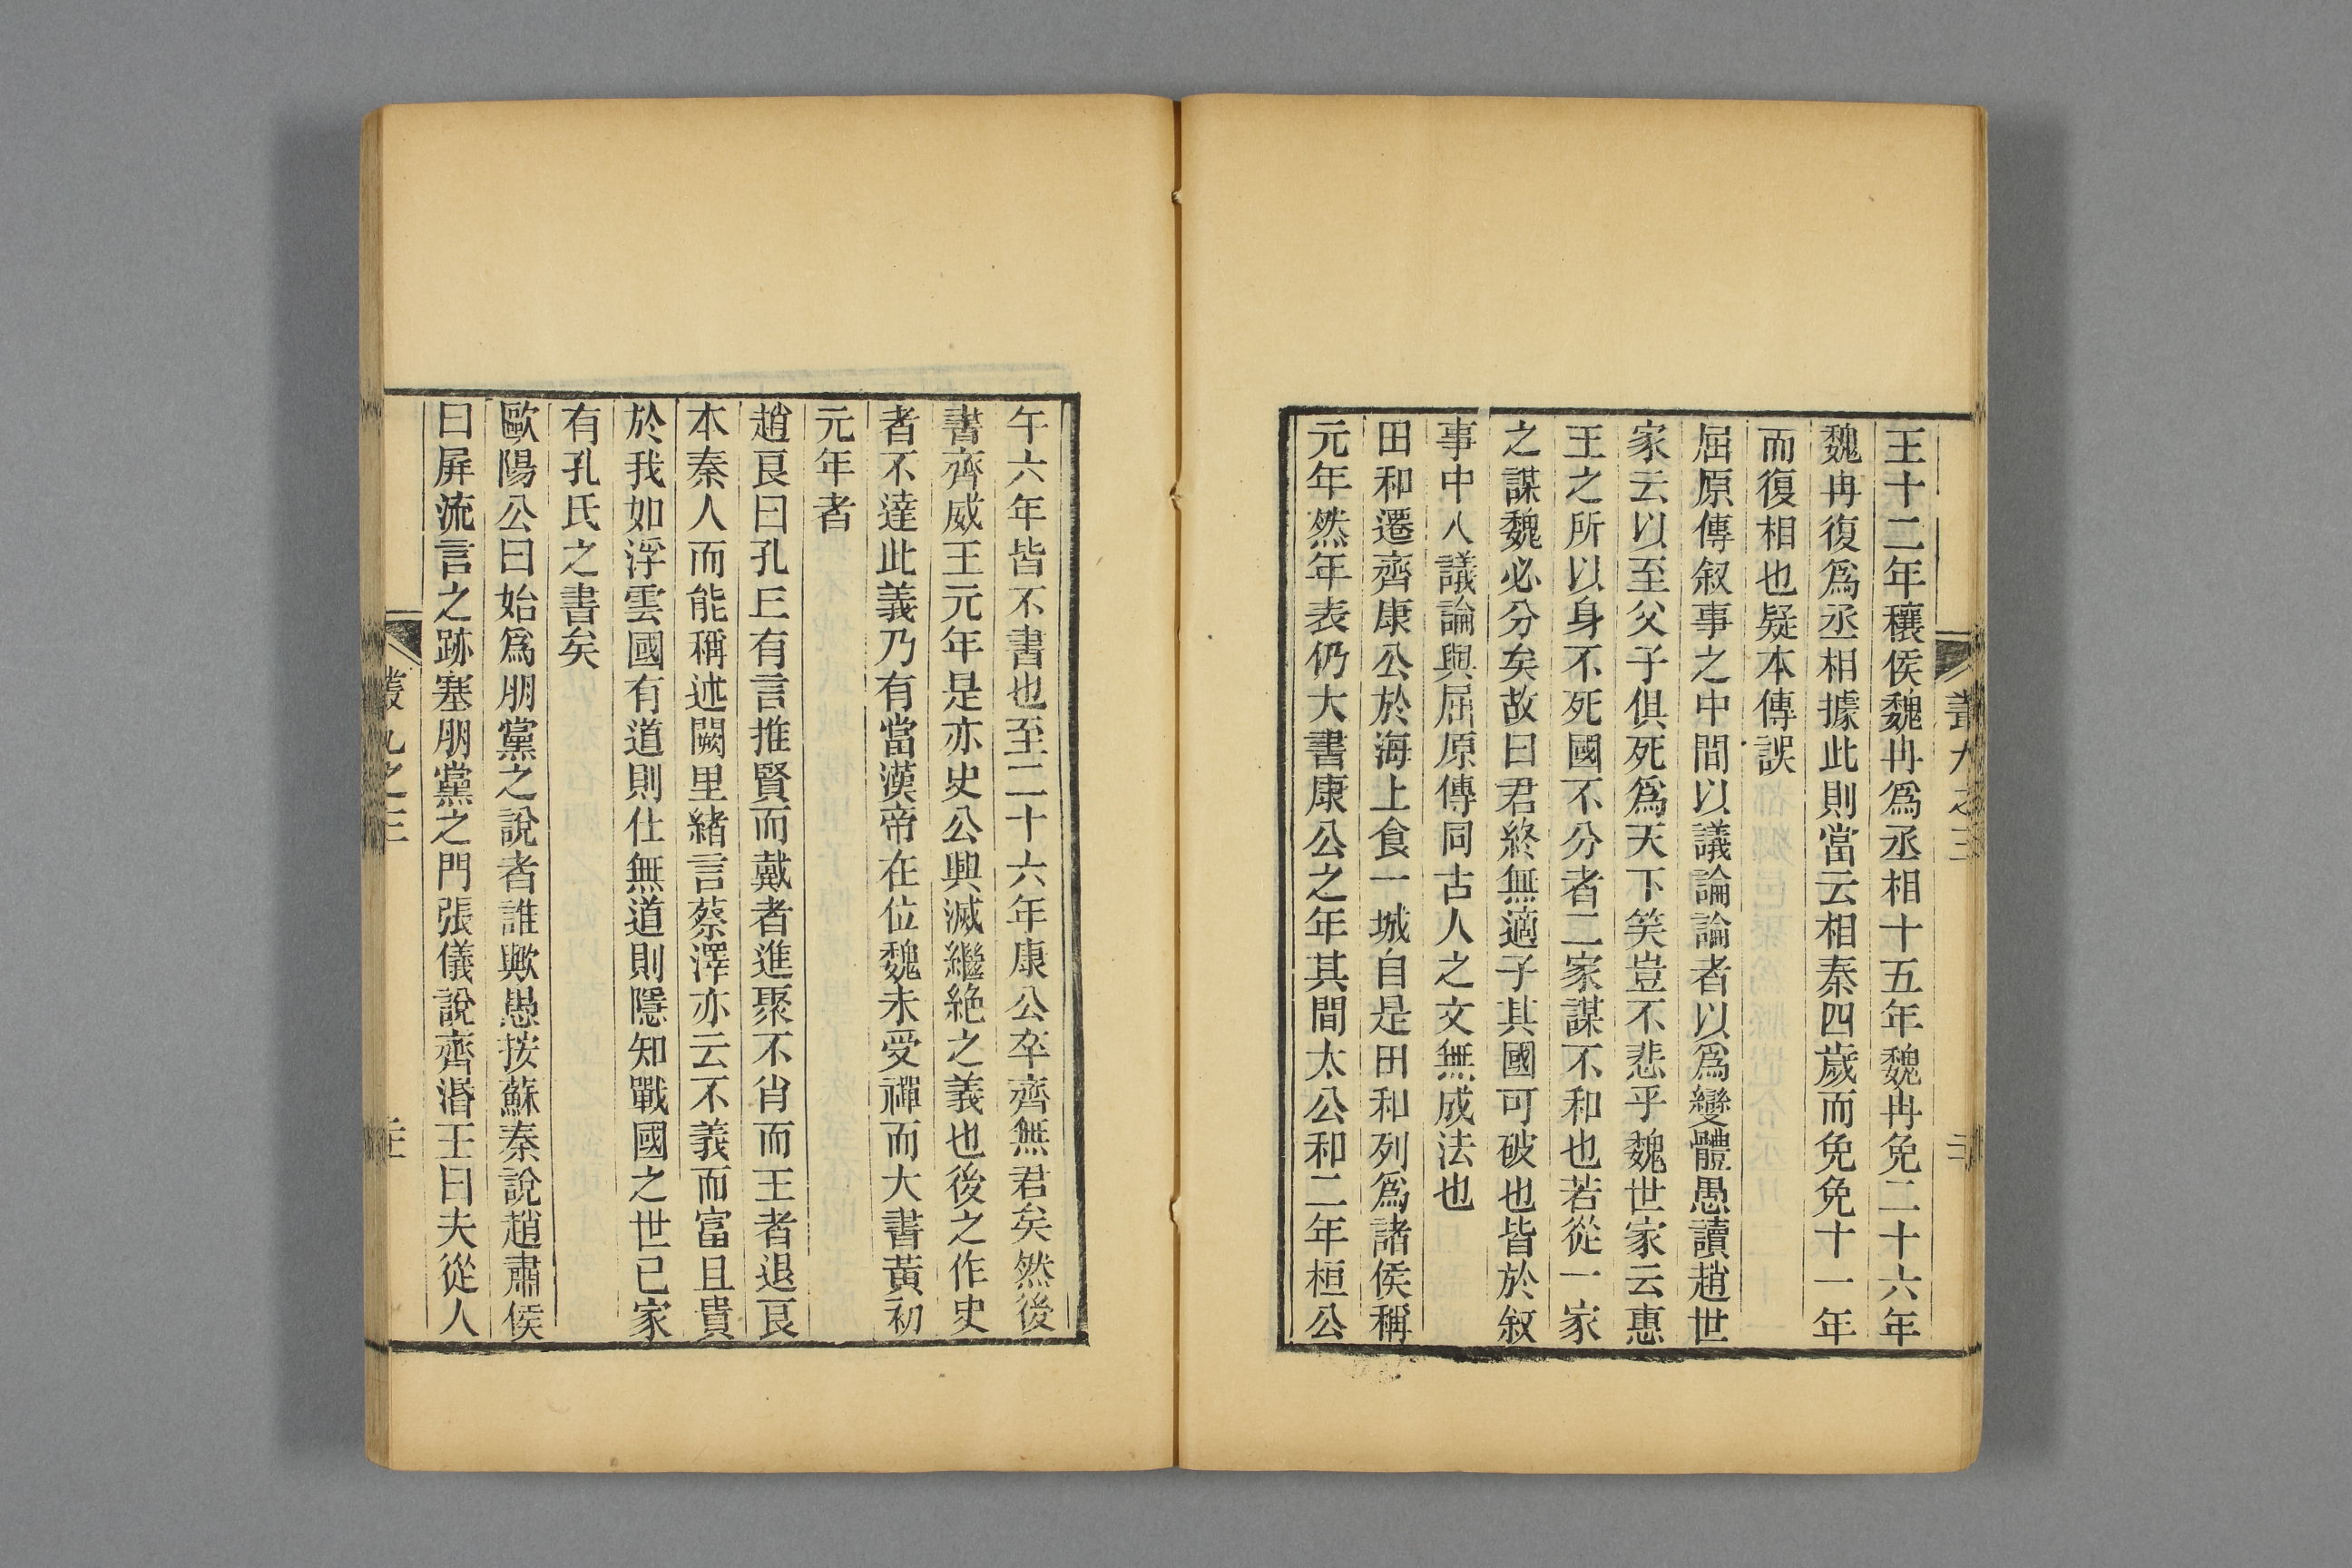 王十二年穰侯魏冉爲丞相十五年魏冉免二十六年
魏冉復爲丞相據此則當云相秦四歲而免免十一年
而復相也疑本傳誤
屈原傳叙事之中間以議論論者以爲變體愚讀趙世
家云以至父子俱死爲天下笑豈不悲乎魏世家云惠
王之所以身不死國不分者二家謀不和也若從一家
之謀魏必分矣故曰君終無適子其國可破也皆於叙
事中入議論與屈原傳同古人之文無成法也
田和遷齊康公於海上食一城自是田和列爲諸侯稱
元年然年表仍大書康公之年其間太公和二年桓公
午六年皆不書也至二十六年康公卒齊無君矣然後
書齊威王元年是亦史公興滅繼絶之義也後之作史
者不達此義乃有當漢帝在位魏未受禪而大書黃初
元年者
趙良曰孔丘有言推賢而戴者進聚不肖而王者退良
本秦人而能稱述闕里緒言蔡澤亦云不義而富且貴
於我如浮雲國有道則仕無道則隱知戰國之世已家
有孔氏之書矣
歐陽公曰始爲朋黨之說者誰歟愚按蘇秦說趙肅侯
曰屏流言之跡塞朋黨之門張儀說齊湣王曰夫從人
叢九之三